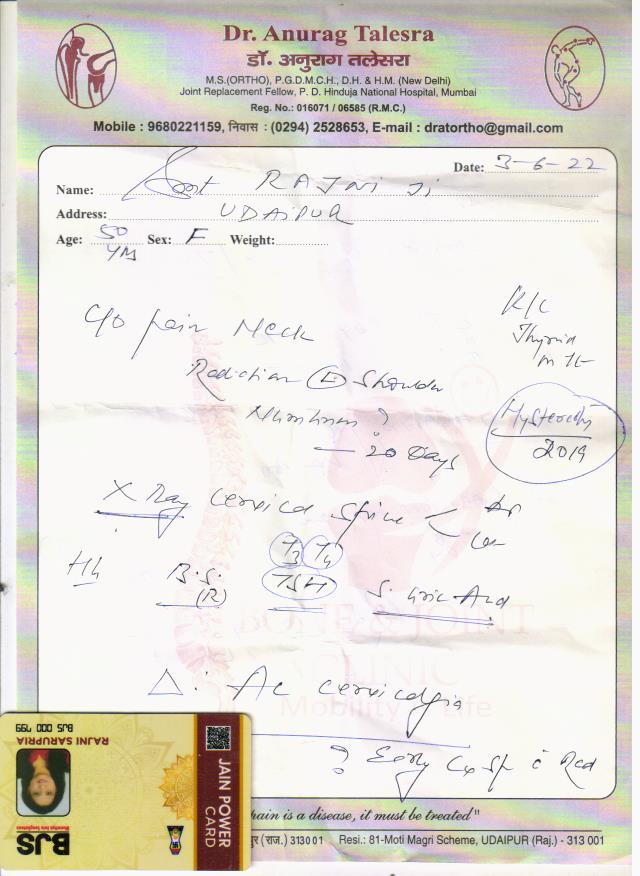 Dr. Anurag Talesra
डॉ. अनुराग तलेसरा
M.S.(ORTHO), P.G.D.M.C.H., D.H. & H.M. (New Delhi)
Joint Replacement Fellow, P. D. Hinduja National Hospital, Mumbai
Reg. No.: 016071 / 06585 (R.M.C.)
Mobile : 9680221159, निवास : (0294) 2528653, E-mail : dratortho@gmail.com
Date: 3-6-22
Name: RAJNI Ji
Address: UDAIPUR
Age: 50 Yrs Sex: F Weight:
K/C
Thyroid
c/o pain Neck
Radiation Shoulder
Numbness ?
— 20 Days
Hysterectomy
2019
X Ray cervical spine < AP
Lat
T3 T4
Hb B.S. (R) TSH S. Uric Acid
BONE & JOINT
CLINIC
Mobility Life
Δ: Ac cervicalgia
? Early Cx Sp c Rad
pain is a disease, it must be treated"
(राज.) 313001 Resi.: 81-Moti Magri Scheme, UDAIPUR (Raj.) - 313 001
JAIN POWER
CARD
RAJNI SARUPRIA
BJS 000 799
BJS